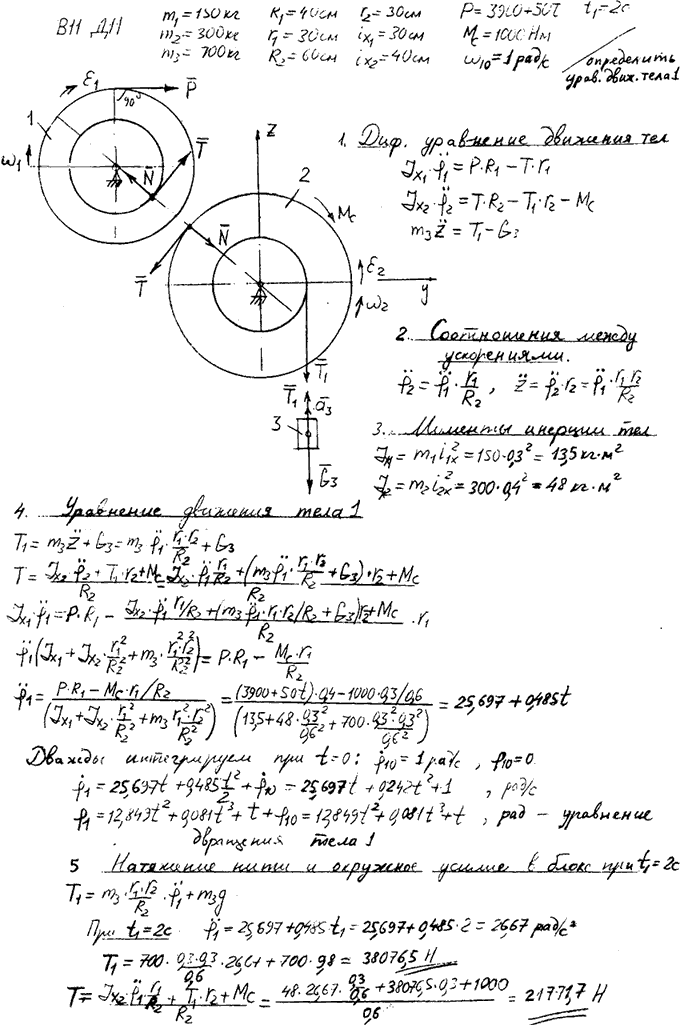 В11 Д11
m₁=150кг R₁=40см r₂=30см P=3900+50t t₁=2c
m₂=300кг r₁=30см ix₁=30см Mc=1000Нм
m₃=700кг R₂=60см ix₂=40см ω₁₀=1рад/с
определить
урав. движ. тела 1
ε₁ 90° P̄
1
ω₁ N̄ T̄
z
2
Mc
N̄
T̄
ε₂
ω₂
y
T̄₁
T̄₁ ā₃
3
Ḡ₃
1. Диф. уравнение движения тел
Jx₁·φ̈₁=P·R₁-T·r₁
Jx₂·φ̈₂=T·R₂-T₁·r₂-Mc
m₃z̈=T₁-G₃
2. Соотношения между
ускорениями.
φ̈₂=φ̈₁·r₁/R₂, z̈=φ̈₂·r₂=φ̈₁·r₁r₂/R₂
3. Моменты инерции тел
Jx₁=m₁i₁ₓ²=150·0,3²=13,5 кг·м²
Jx₂=m₂i₂ₓ²=300·0,4²=48 кг·м²
4. Уравнение движения тела 1
T₁=m₃z̈+G₃=m₃φ̈₁·r₁·r₂/R₂+G₃
T=(Jx₂·φ̈₂+T₁·r₂+Mc)/R₂=(Jx₂·φ̈₁r₁/R₂+(m₃φ̈₁·r₁·r₂/R₂+G₃)·r₂+Mc)/R₂
Jx₁·φ̈₁=P·R₁-(Jx₂·φ̈₁r₁/R₂+(m₃φ̈₁·r₁·r₂/R₂+G₃)r₂+Mc)/R₂·r₁
φ̈₁(Jx₁+Jx₂·r₁²/R₂²+m₃·r₁²r₂²/R₂²)=P·R₁-Mc·r₁/R₂
φ̈₁=(P·R₁-Mc·r₁/R₂)/(Jx₁+Jx₂·r₁²/R₂²+m₃r₁²·r₂²/R₂²)=((3900+50t)·0,4-1000·0,3/0,6)/(13,5+48·0,3²/0,6²+700·0,3²·0,3²/0,6²)=25,697+0,485t
Дважды интегрируем при t=0: φ̇₁₀=1рад/с, φ₁₀=0
φ̇₁=25,697t+0,485t²/2+φ̇₁₀=25,697t+0,242t²+1, рад/с
φ₁=12,849t²+0,081t³+t+φ₁₀=12,849t²+0,081t³+t, рад - уравнение
вращения тела 1
5 Натяжение нити и окружное усилие в блоке при t₁=2c
T₁=m₃·r₁·r₂/R₂·φ̈₁+m₃g
При t₁=2c φ̈₁=25,697+0,485t₁=25,697+0,485·2=26,67 рад/с²
T₁=700·0,3·0,3/0,6·26,67+700·9,8=38076,5 Н
T=(Jx₂·φ̈₁r₁/R₂+T₁·r₂+Mc)/R₂=(48·26,67·0,3/0,6+38076,5·0,3+1000)/0,6=21771,7 Н